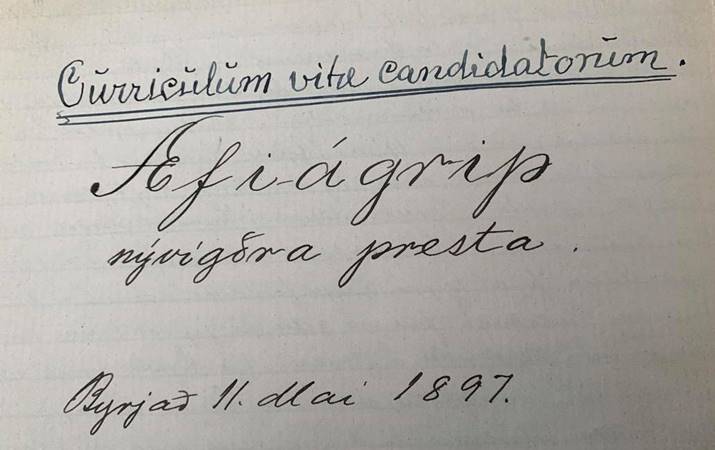 Cŭrricŭlŭm vitæ candidatorŭm.
Æfi-ágrip
nývígðra presta.
Byrjað 11. Mai 1897.